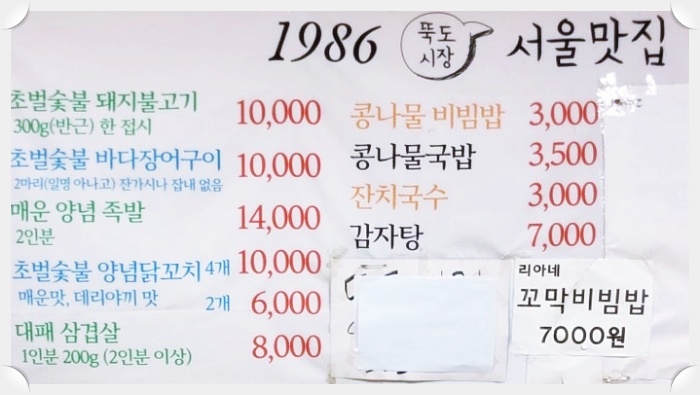 1986 뚝도시장 서울맛집
초벌숯불 돼지불고기 10,000
300g(반근) 한 접시
초벌숯불 바다장어구이 10,000
2마리(일명 아나고) 잔가시나 잡내 없음
매운 양념 족발 14,000
2인분
초벌숯불 양념닭꼬치 4개 10,000
매운맛, 데리야끼 맛 2개 6,000
대패 삼겹살 8,000
1인분 200g (2인분 이상)
콩나물 비빔밥 3,000
콩나물국밥 3,500
잔치국수 3,000
감자탕 7,000
리아네
꼬막비빔밥
7000원